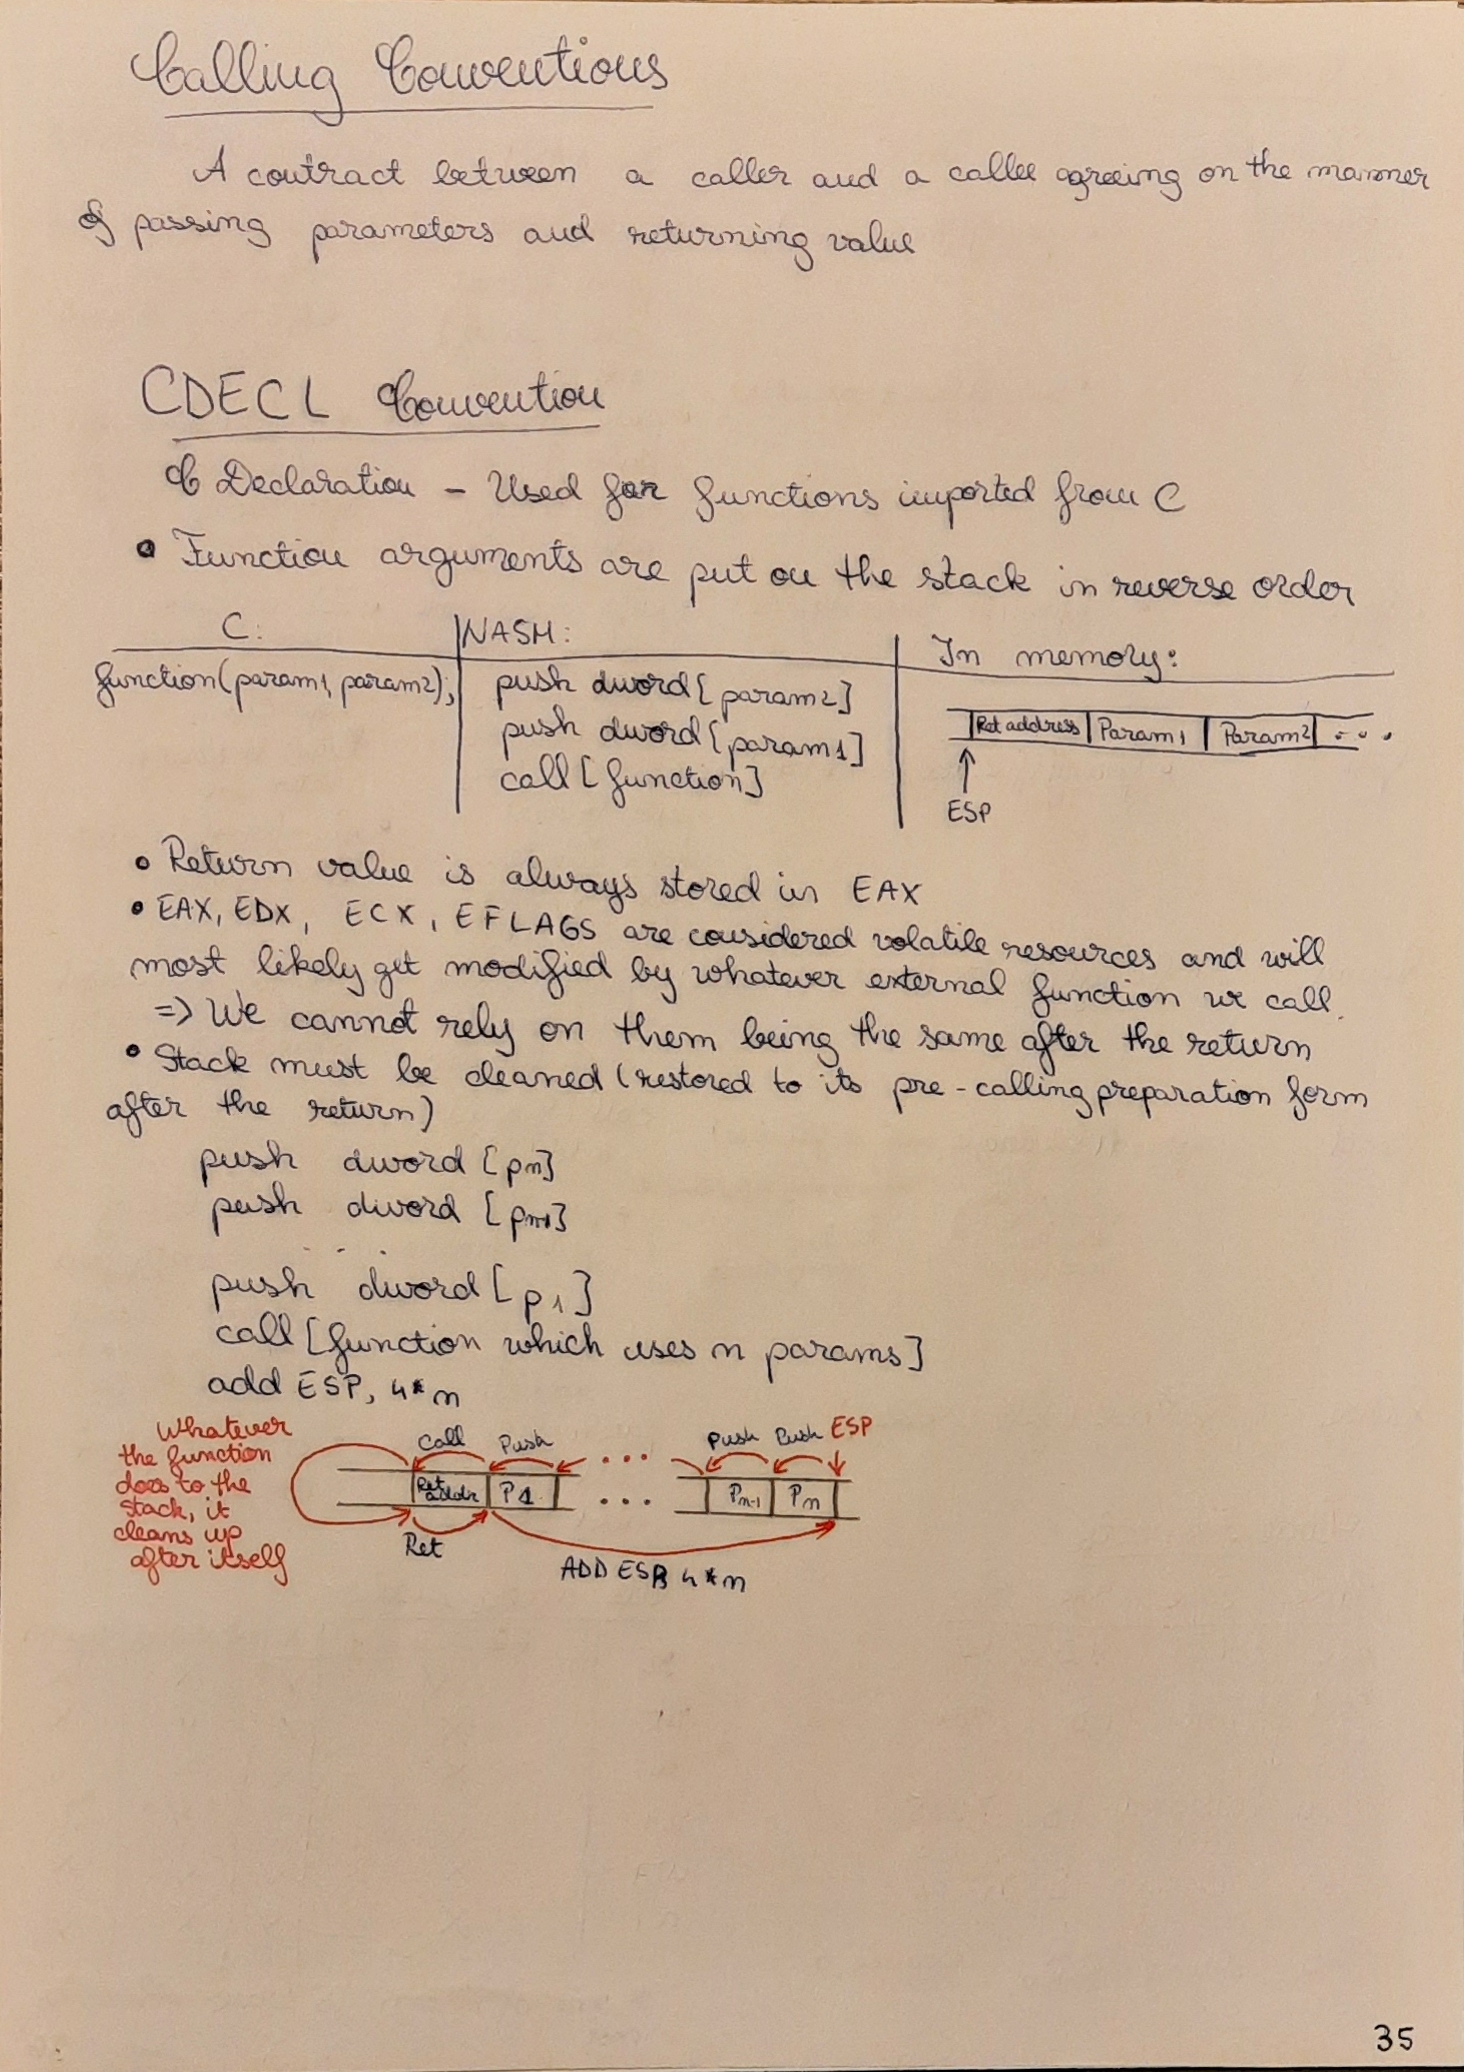 Calling Conventions
A contract between a caller and a callee agreeing on the manner
of passing parameters and returning value
CDECL Convention
C Declaration - Used for functions imported from C
• Function arguments are put on the stack in reverse order
C: NASM: In memory:
function(param1, param2); push dword[param2]
push dword[param1]
call[function]
Ret address Param1 Param2 ...
ESP
• Return value is always stored in EAX
• EAX, EDX, ECX, EFLAGS are considered volatile resources and will
most likely get modified by whatever external function we call.
=> We cannot rely on them being the same after the return
• Stack must be cleaned (restored to its pre-calling preparation form
after the return)
push dword [pn]
push dword [pn-1]
...
push dword [p1]
call [function which uses n params]
add ESP, 4*n
Whatever
the function
does to the
stack, it
cleans up
after itself
Call Push ... Push Push ESP
Ret addr P1 ... Pn-1 Pn
Ret
ADD ESP, 4*n
35